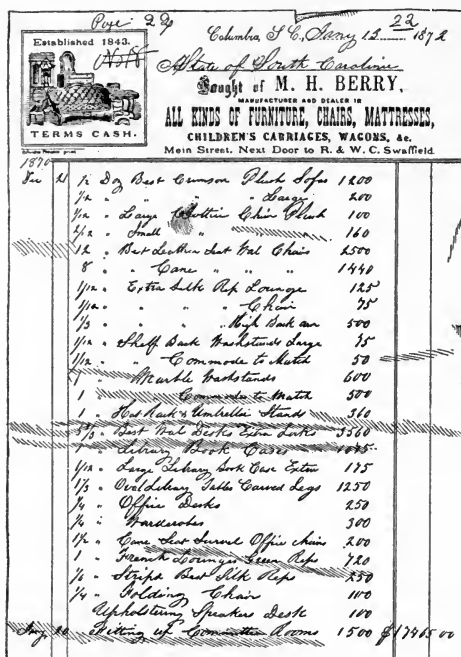 Page 29
22
Columbia, S. C., Jany 12 1872
Established 1843.
No 18
TERMS CASH.
State of South Carolina
Bought of M. H. BERRY,
MANUFACTURER AND DEALER IN
ALL KINDS OF FURNITURE, CHAIRS, MATTRESSES,
CHILDREN'S CARRIAGES, WAGONS, &c.
Main Street, Next Door to R. & W. C. Swaffield.
1870
Dec 21 1/2 Doz Best Crimson Plush Sofas 1200
1/12 " " " " Large 200
1/12 " Large Chair Plush 100
2/12 " Small " " 160
12 " Best Leather Seat Wal Chairs 2500
8 " " Cane " " " 1440
1/12 " Extra Silk Rep Lounge 125
1/12 " " " " Chair 75
1/3 " " " " High Back 500
1/12 " Shelf Back Washstands Large 75
1/12 " " Commode to Match 50
1 " Marble Washstands 600
1 " Commode to Match 500
1 " Hat Rack & Umbrella Stands 560
" Best Wal Desks Extra Locks 3360
1 " Library Book Cases
1/12 " Large Library Book Case Extra 175
1/3 " Oval Library Tables Carved Legs 1250
1/4 " Office Desks 250
1/4 " Wardrobes 300
1/2 " Cane Seat Office chairs 200
1 " French Lounges Green Reps 720
1/6 " Best Silk Reps 250
1/4 " Folding Chair 100
Upholstering Speakers Desk 100
20 Fitting up Committee Rooms 1500 $17465 00